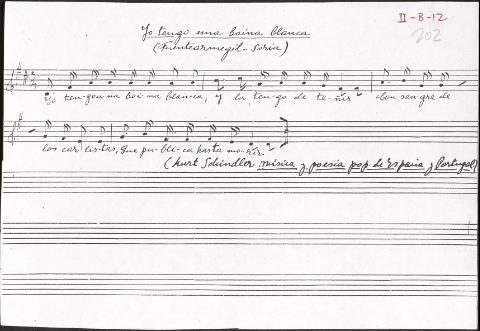 Yo tengo una boina blanca
II-B-12
202
(Fuentearmegil - Soria)
Yo ten-gou-na boi-na blan-ca, y la ten-go de te-ñir con san-gre de
los car-lis-tas, que pu-bli-ca hasta mo-rir.
(Kurt Schindler música y poesía pop. de España y Portugal)